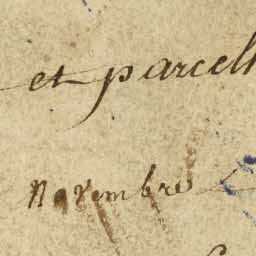 et parcell
Novembre